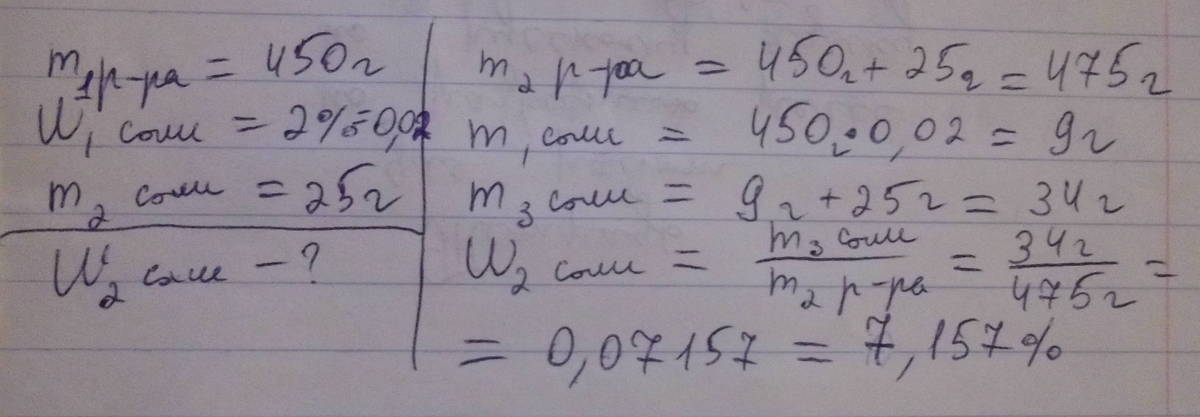 m₁ р-ра = 450г
W₁ соли = 2% = 0,02
m₂ соли = 25г
W₂ соли – ?
m₂ р-ра = 450г + 25г = 475г
m₁ соли = 450г · 0,02 = 9г
m₃ соли = 9г + 25г = 34г
W₂ соли = m₃ соли / m₂ р-ра = 34г / 475г =
= 0,07157 = 7,157%